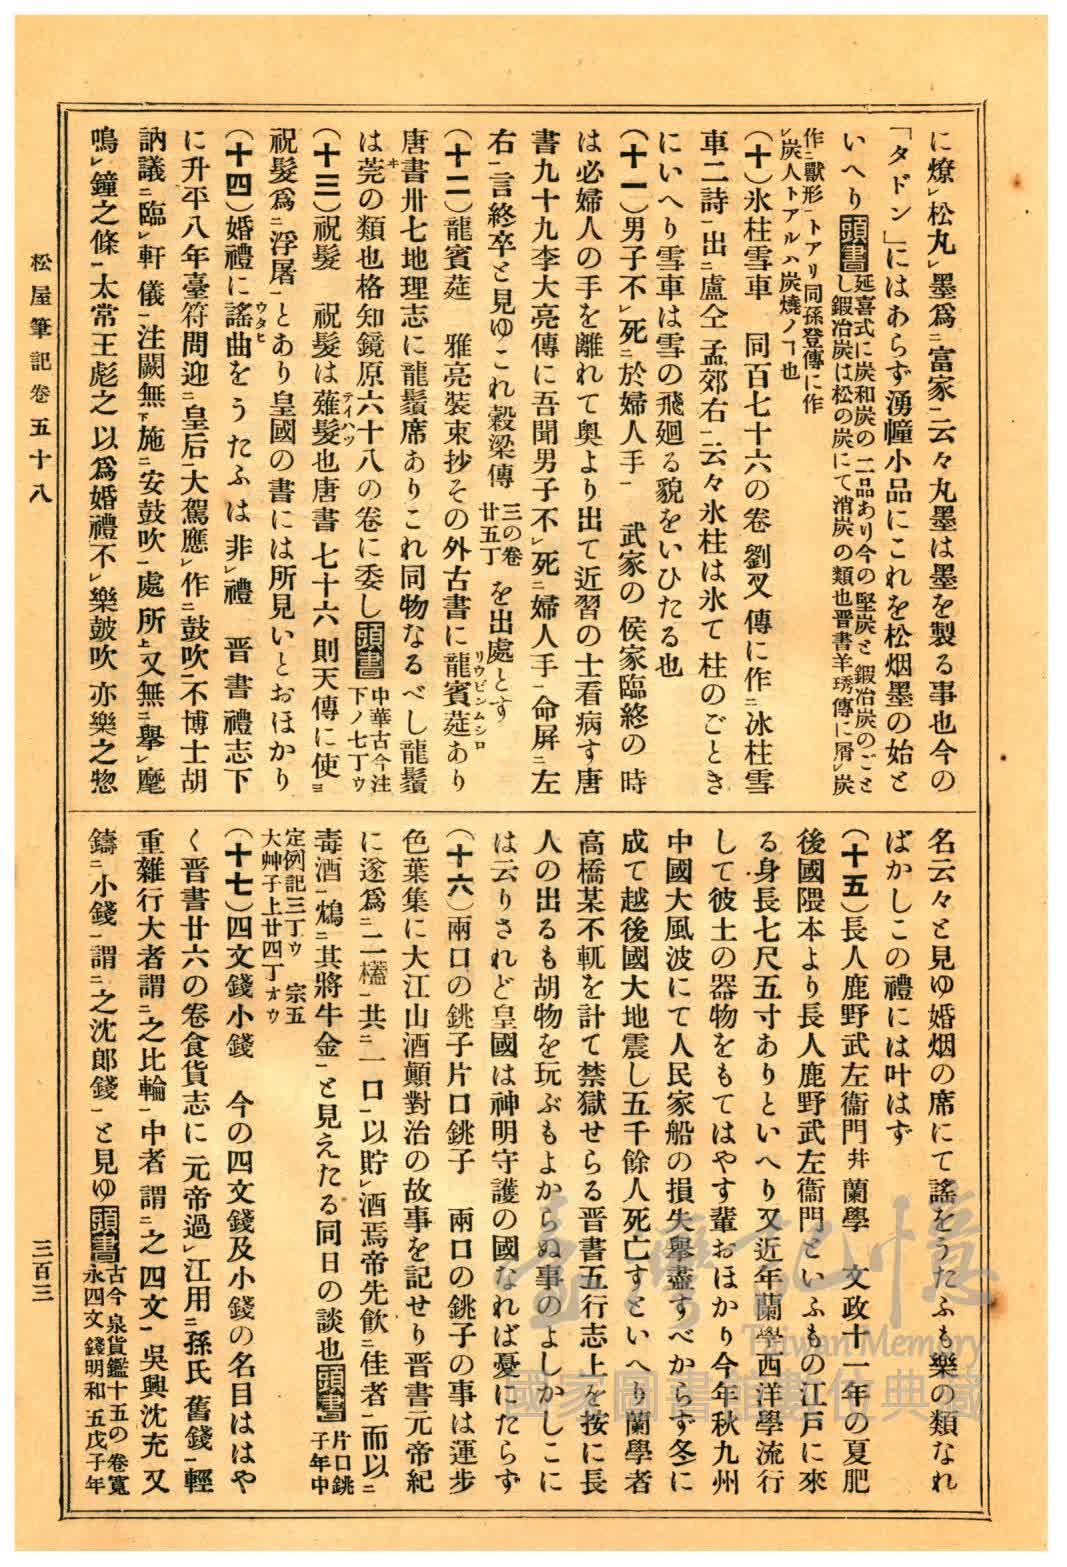 に燎㆑松丸㆑墨爲㆓富家㆒云々丸墨は墨を製る事也今の
「タドン」にはあらず湧幢小品にこれを松烟墨の始と
いへり 頭書 延喜式に炭和炭の二品あり今の堅炭と鍛冶炭のごと
し鍛冶炭は松の炭にて消炭の類也晋書羊琇傳に屑㆑炭
作㆓獸形㆒トアリ同孫登傳に作
㆑炭人トアルハ炭燒ノヿ也
(十)氷柱雪車 同百七十六の卷劉叉傳に作㆓冰柱雪
車二詩㆒出㆓盧仝孟郊右㆒云々氷柱は氷て柱のごとき
にいへり雪車は雪の飛廻る貌をいひたる也
(十一)男子不㆑死㆓於婦人手㆒ 武家の侯家臨終の時
は必婦人の手を離れて奥より出て近習の士看病す唐
書九十九李大亮傳に吾聞男子不㆑死㆓婦人手㆒命屏㆓左
右㆒言終卒と見ゆこれ穀梁傳 三の卷
廿五丁 を出處とす
(十二)龍賓莚 雅亮裝束抄その外古書に龍賓莚リウビンムシロあり
唐書卅七地理志に龍鬚席ありこれ同物なるべし龍鬚
は莞ヰの類也格知鏡原六十八の卷に委し 頭書 中華古今注
下ノ七丁ウ
(十三)祝髮 祝髮は薙髮テイハツ也唐書七十六則天傳に使ヨ
祝髮爲㆓浮屠㆒とあり皇國の書には所見いとおほかり
(十四)婚禮に謠曲ウタヒをうたふは非㆑禮 晋書禮志下
に升平八年臺符問迎㆓皇后㆒大駕應㆑作㆓鼓吹㆒不博士胡
訥議㆓臨㆑軒儀㆒注闕無㆘施㆓安鼓吹㆒處所㆖又無㆓擧㆑麾
鳴㆑鐘之條㆒太常王彪之以爲婚禮不㆑樂鼓吹亦樂之惣
名云々と見ゆ婚烟の席にて謠をうたふも樂の類なれ
ばかしこの禮には叶はず
(十五)長人鹿野武左衞門井蘭學 文政十一年の夏肥
後國隈本より長人鹿野武左衞門といふもの江戸に來
る身長七尺五寸ありといへり又近年蘭學西洋學流行
して彼土の器物をもてはやす輩おほかり今年秋九州
中國大風波にて人民家船の損失擧盡すべからず冬に
成て越後國大地震し五千餘人死亡すといへり蘭學者
高橋某不軌を計て禁獄せらる晋書五行志上を按に長
人の出るも胡物を玩ぶもよからぬ事のよしかしこに
は云りされど皇國は神明守護の國なれば憂にたらず
(十六)兩口の銚子片口銚子 兩口の銚子の事は運步
色葉集に大江山酒顛對治の故事を記せり晋書元帝紀
に遂爲㆓二榼㆒共㆓一口㆒以貯㆑酒焉帝先飮㆓佳者㆒而以㆓
毒酒㆒鴆㆓其將牛金㆒と見えたる同日の談也 頭書 片口銚
子年中
定例記三丁ウ 宗五
大艸子上廿四丁オウ
(十七)四文錢小錢 今の四文錢及小錢の名目ははや
く晋書廿六の卷食貨志に元帝過㆑江用㆓孫氏舊錢㆒輕
重雜行大者謂㆓之比輪㆒中者謂㆓之四文㆒吳興沈充又
鑄㆓小錢㆒謂㆓之沈郎錢㆒と見ゆ 頭書 古今泉貨鑑十五の卷寬
永四文錢明和五戊子年
松屋筆記卷五十八
三百三
臺灣記憶
Taiwan Memory
國家圖書館數位典藏